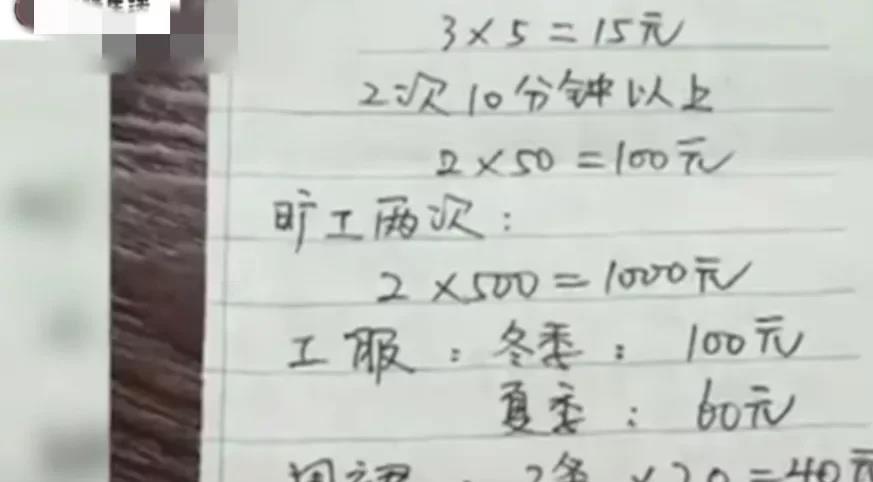 3×5=15元
2次10分钟以上
2×50=100元
旷工两次:
2×500=1000元
工服:冬委:100元
夏委:60元
2条×20=40元